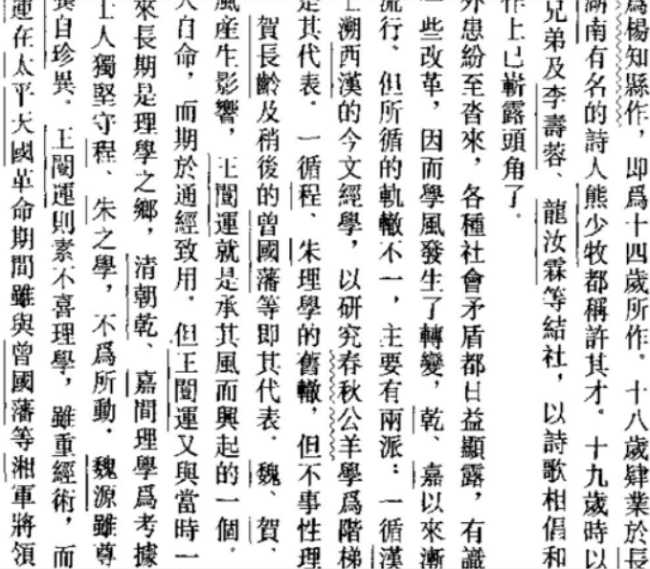 爲楊知縣作，即爲十四歲所作。十八歲肄業於長
湖南有名的詩人熊少牧都稱許其才。十九歲時以
兄弟及李壽蓉、龍汝霖等結社，以詩歌相倡和
作上已嶄露頭角了。
外患紛至沓來，各種社會矛盾都日益顯露，有識
一些改革，因而學風發生了轉變，乾、嘉以來漸
流行、但所循的軌轍不一，主要有兩派：一循漢
上溯西漢的今文經學，以研究春秋公羊學爲階梯
是其代表。一循程、朱理學的舊轍，但不事性理
賀長齡及稍後的曾國藩等即其代表。魏、賀、
風產生影響，王闓運就是承其風而興起的一個。
人自命，而期於通經致用。但王闓運又與當時一
來長期是理學之鄉，清朝乾、嘉間理學爲考據
士人獨堅守程、朱之學，不爲所動。魏源雖尊
自珍異。王闓運則素不喜理學，雖重經術，而
運在太平天國革命期間雖與曾國藩等湘軍將領